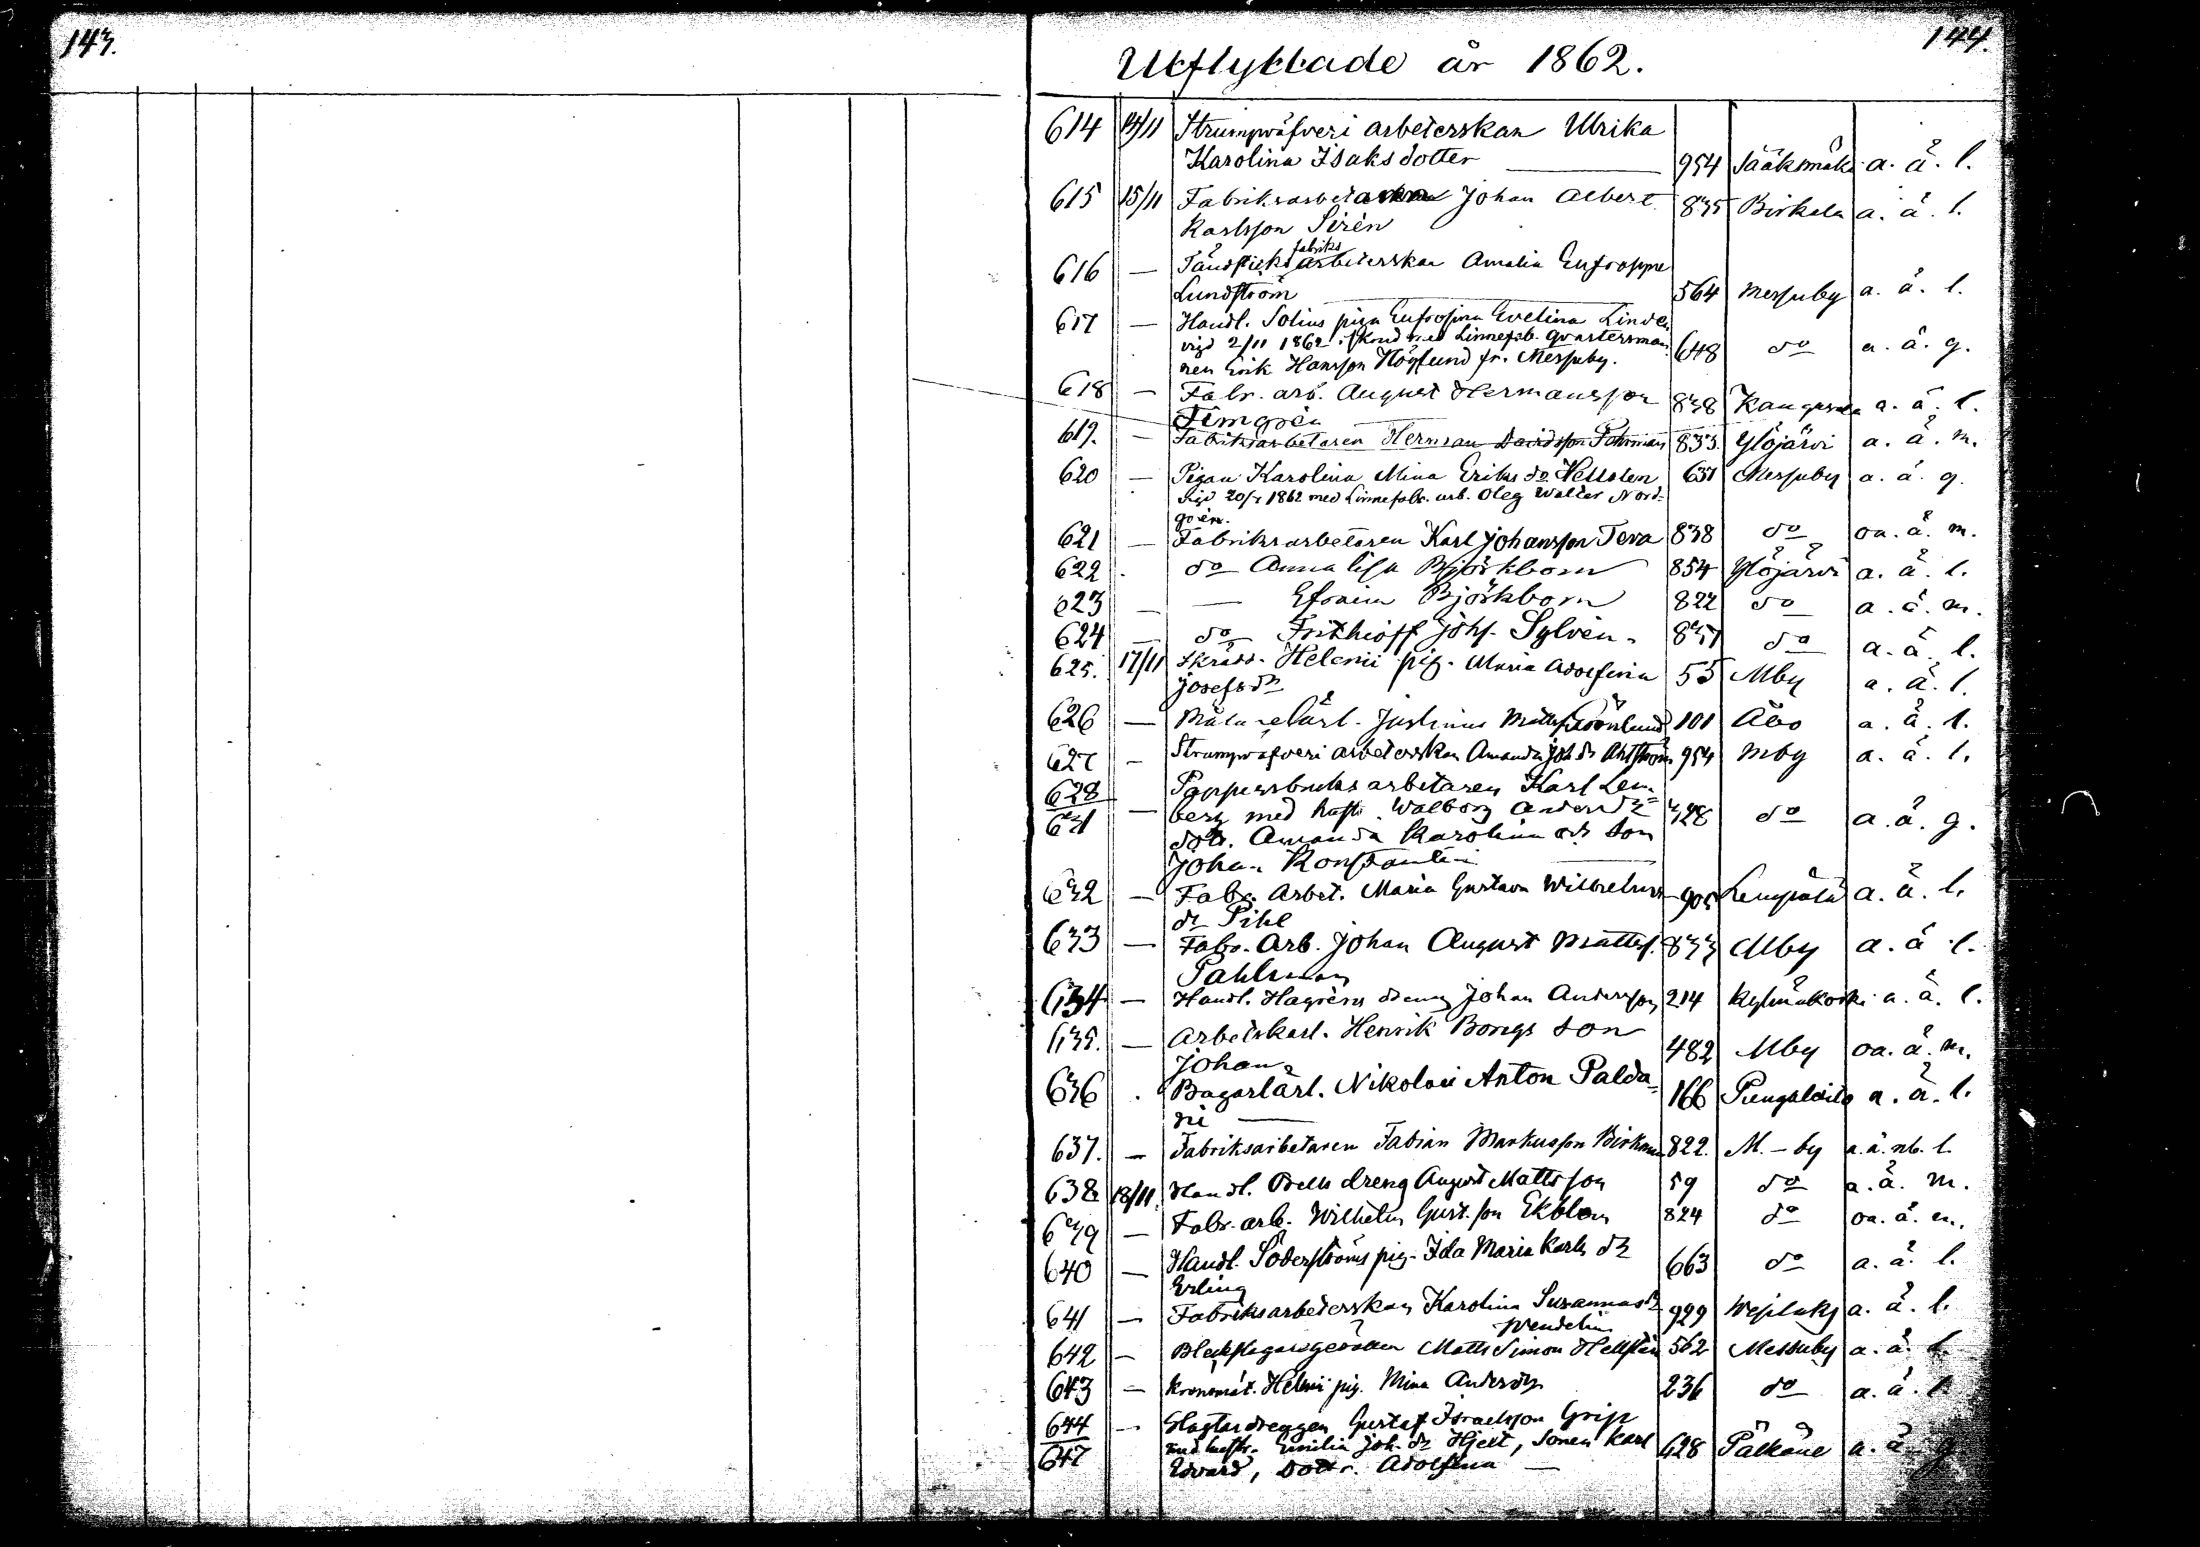 143.
144.
Utflyttade år 1862.
614 14/11 Strumpväfveri arbeterskan Ulrika
Karolina Isaksdotter 954 Sääksmäki a. ä. l.
615 15/11 Fabriksarbetaren Johan Albert 835 Birkala a. ä. l.
Karlsson Sirèn
fabriks
616 — Tändsticks arbeterskan Amalia Eufrosyne
Lundström 564 Messuby a. ä. l.
617 — Handl. Solins piga Eufrosina Evelina Linden
vigd 2/11 1862 med Linnefab. qvartersman
nen Erik Hansson Höglund fr. Messuby. 648 do a. ä. g.
618 — Fabr. arb. August Hermansson 838 Kangasala a. ä. l.
Timgrèn
619. — Fabriksarbetaren Herman Davidsson Pahlman 833 Ylöjärvi a. ä. m.
620 — Pigan Karolina Mina Eriks dr Hellsten 637 Messuby a. ä. g.
vigd 20/7 1862 med Linnefabr. arb. Oleg Walter Nord-
grèn.
621 — Fabriksarbetaren Karl Johansson Teva 838 do oa. ä. m.
622 . do Anna Lisa Björkbom 854 Ylöjärvi a. ä. l.
623 — — Efraim Björkbom 822 do a. ä. m.
624 — do Frithioff Johs. Sylvèn 857 do a. ä. l.
625. 17/11 Skrädd. Helenii pig. Maria Adolfina 55 Mby a. ä. l.
Josefs dr
626 — Målarelärl. Justinus Mattss. Grönlund 101 Åbo a. ä. l.
627 — Strumpväfveri arbeterskan Amanda Joh. dr Ahlström 954 Mby a. ä. l.
628
631 — Pappersbruks arbetaren Karl Lem-
berg med hustr. Walborg Anders dr 328 do a. ä. g.
dotr. Amanda Karolina och son
Johan Konstantin
632 — Fabr. Arbet. Maria Gustava Wilhelms- 905 Lempälä a. ä. l.
dr Pihl
633 — Fabr. Arb. Johan August Mattss. 833 Mby a. ä. l.
Pahlman
634 — Handl. Hagrèns dreng Johan Andersson 214 Kylmäkoski a. ä. l.
635. — Arbetskarl. Henrik Bongs son
Johan 482 Mby oa. ä. m.
636 . Bagarlärl. Nikolai Anton Palda- 166 Pungalaitio a. ä. l.
nii
637. — Fabriksarbetaren Fabian Markusson Birkman 822. M.-by a. ä. nb. l.
638 18/11. Handl. Bells dreng August Mattsson 59 do a. ä. m.
639 — Fabr. arb. Wilhelm Gust. son Ekblom 824 do oa. ä. m.
640 — Handl. Söderströms pig. Ida Maria Karls dr 663 do a. ä. l.
Erling
641 — Fabriksarbeterskan Karolina Susannas dr 929 Wesilaks a. ä. l.
Wendelin
642 — Bleckslagaregesällen Matts Simon Hellstèn 562 Messuby a. ä. l.
643 — Kronomät. Helenii pig. Mina Anders dr 236 do a. ä. l.
644
647 — Slagtardrengen Gustaf Israelsson Grip
med hustr. Emilia Joh. dr Hjelt, sonen Karl 628 Pälkäne a. ä. g
Edvard, Dottr. Adolfina —